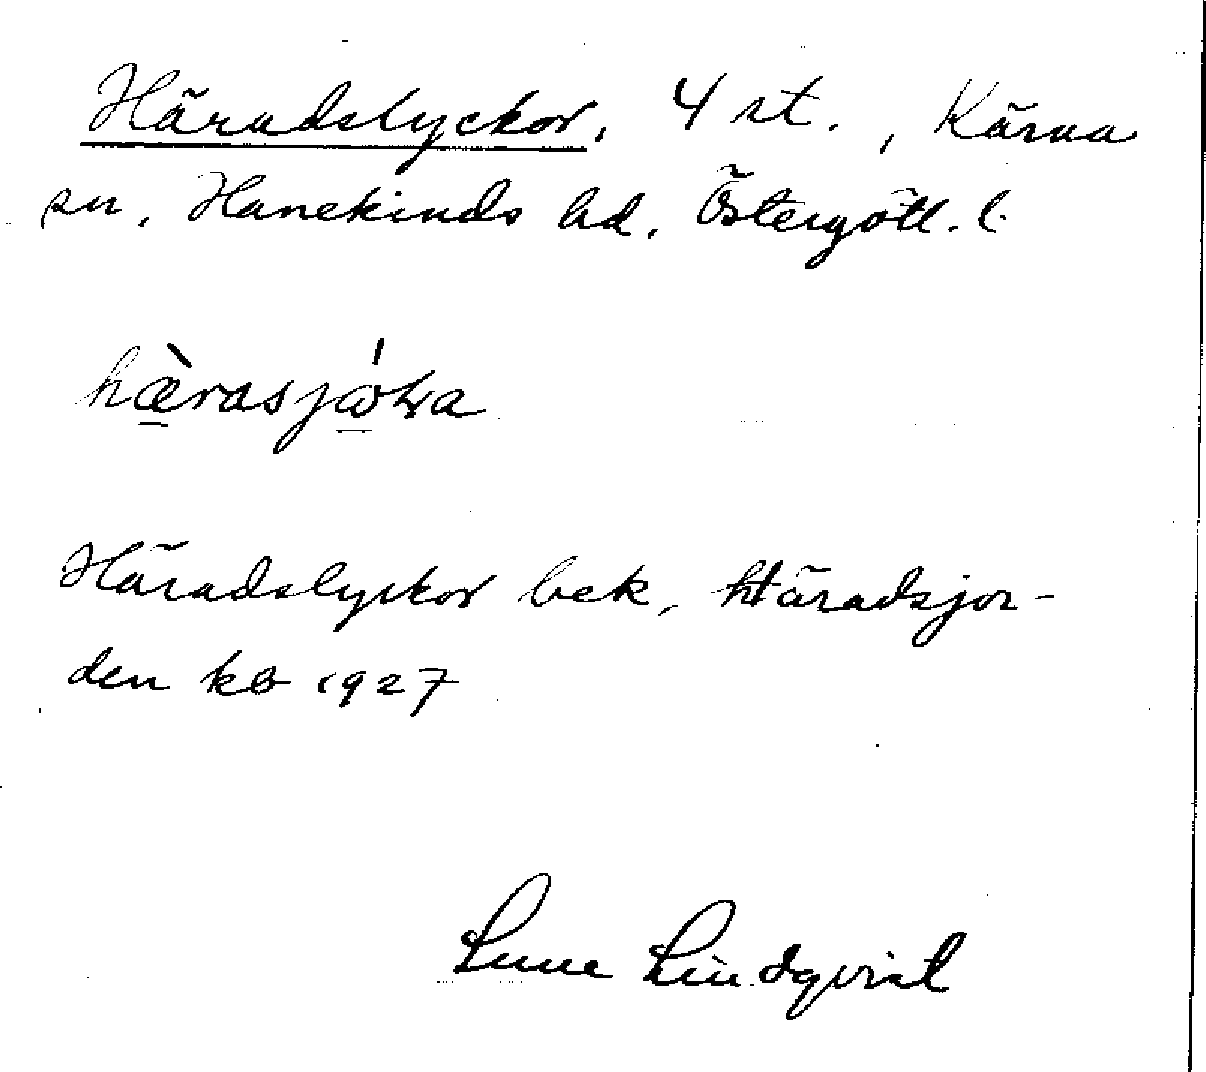 Häradslyckor, 4 st., Kärna
sn, Hanekinds hd, Östergötl. l.
hæ̀rasjó̱ƕa
Häradslyckor bek, Häradsjor-
den kb 1927
Sune Lindqvist